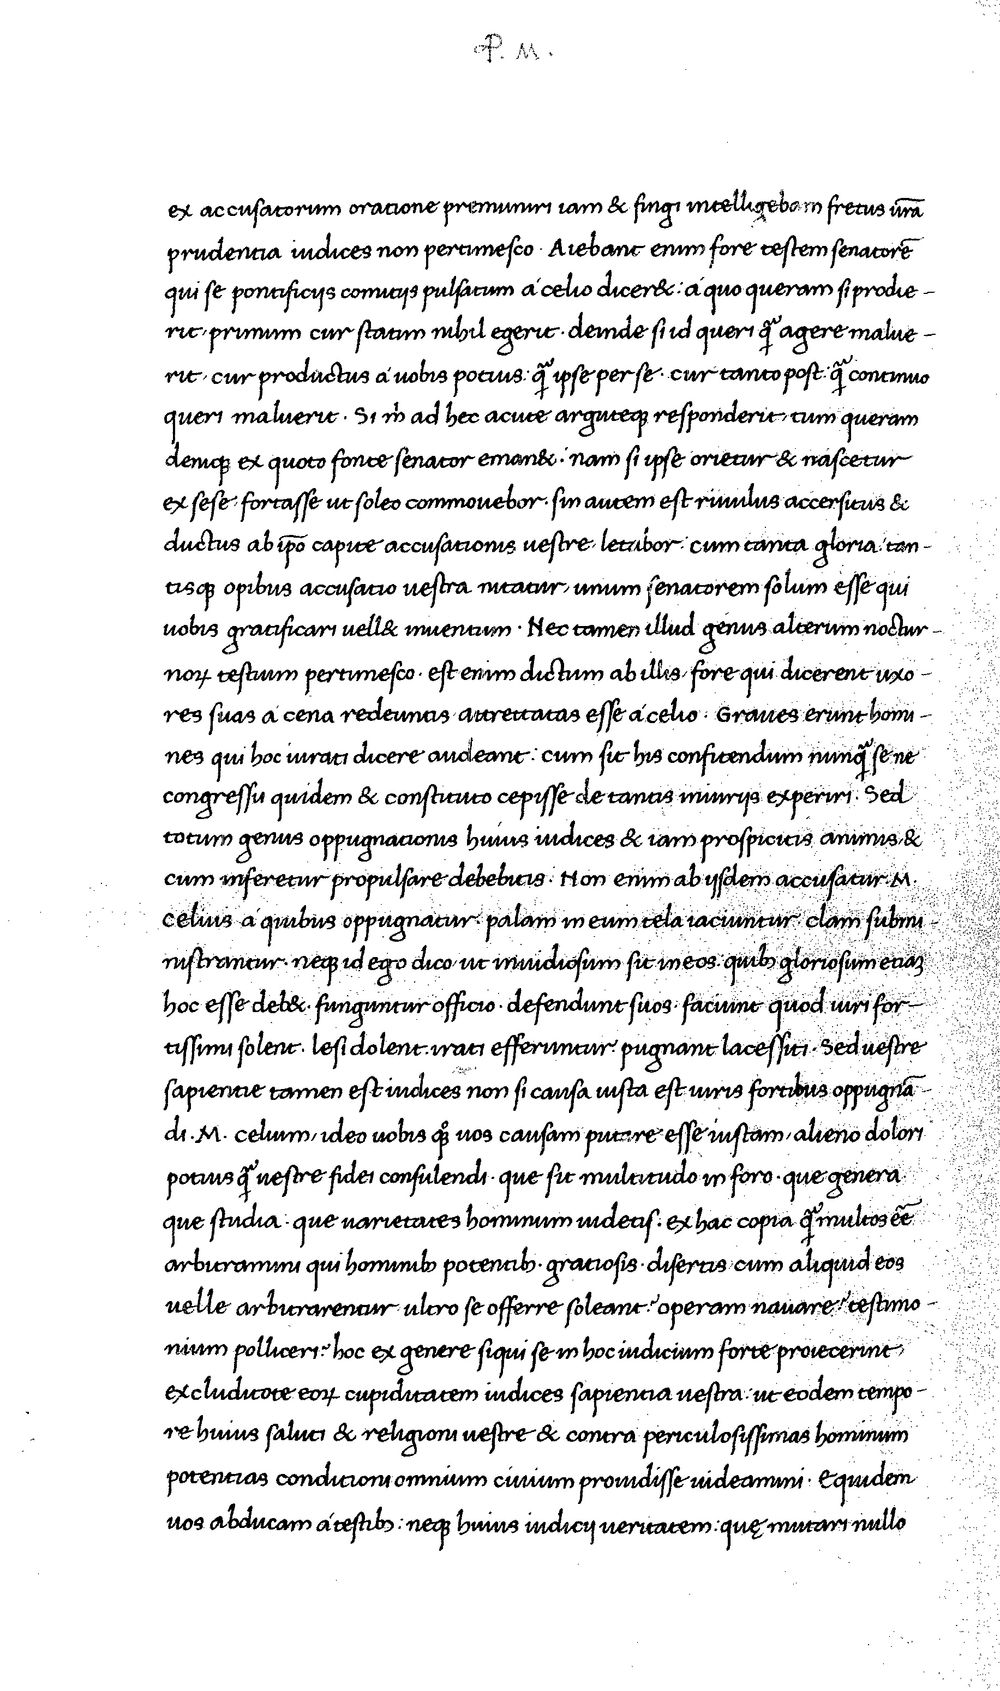 P. M.
ex accusatorum oratione premuniri iam & fingi intelligebam fretus ūrā
prudentia iudices non pertimesco · Aiebant enim fore testem senatorē
qui se pontificijs comitijs pulsatum á celio dicer& : á quo queram si prodie-
rit, primum cur statim nihil egerit · deinde si id queri q̃ agere malue-
rit, cur productus á uobis potius: q̃ ipse per se · cur tanto post: q̃ continuo
queri maluerit · Si m̄ ad hec acute arguteqȝ responderit, tum queram
deniqȝ ex quoto fonte senator eman& · nam si ipse orietur & nascetur
ex sese, fortasse ut soleo commouebor · sin autem est riuulus accersitus &
ductus ab ip̄o capite accusationis uestre, letabor: cum tanta gloria, tan-
tisqȝ opibus accusatio uestra nitatur, unum senatorem solum esse qui
uobis gratificari uell& inuentum · Nec tamen illud genus alterum noctur-
noꝝ testium pertimesco · est enim dictum ab illis, fore qui dicerent uxo-
res suas á cena redeuntis attrettatas esse á celio · Graues erunt homi-
nes qui hoc iurati dicere audeant: cum sit his confitendum nunq̃ se ne
congressu quidem & constituto cepisse de tantis iniurijs experiri · Sed
totum genus oppugnationis huius iudices & iam prospicitis animis, &
cum inferetur propulsare debebitis · Non enim ab ijsdem accusatur M.
celius á quibus oppugnatur: palam in eum tela iaciuntur: clam submi-
nistrantur · neqȝ id ego dico, ut inuidiosum sit in eos: quibȝ gloriosum etiaȝ
hoc esse deb& · funguntur officio · defendunt suos · faciunt quod uiri for-
tissimi solent · lesi dolent · irati efferuntur: pugnant lacessiti · Sed uestre
sapientie tamen est iudices non si causa iusta est uiris fortibus oppugnā-
di · M. celium, ideo uobis qͦȝ uos causam putare esse iustam, alieno dolori
potius q̃ uestre fidei consulendi · que sit multitudo in foro · que genera
que studia · que uarietates hominum uidetis · ex hac copia q̃ multos eē
arbitramini qui hominibȝ potentibȝ · gratiosis · disertis cum aliquid eos
uelle arbitrarentur ultro se offerre soleant? operam nauare? testimo-
nium polliceri? hoc ex genere siqui se in hoc iudicium forte proiecerint,
excluditote eoꝝ cupiditatem iudices sapientia uestra: ut eodem tempo-
re huius saluti & religioni uestre & contra periculosissimas hominum
potentias conditioni omnium ciuium prouidisse uideamini · Equidem
uos abducam á testibȝ: neqȝ huius iudicij ueritatem: quę mutari nullo